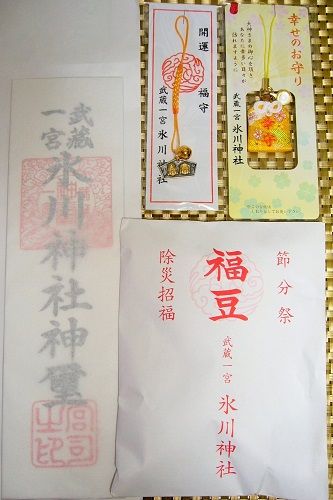 武蔵
一宮
氷川神社神璽
宮司
之印
開運
福守
武蔵一宮 氷川神社
幸せのお守り
武蔵一宮 氷川神社
節分祭
福豆
除災招福
武蔵一宮 氷川神社